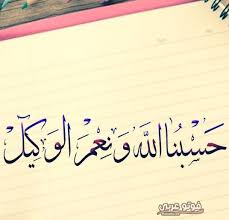 حَسْبُنَا اللَّهُ وَنِعْمَ الوَكِيْل
فوتو عربي